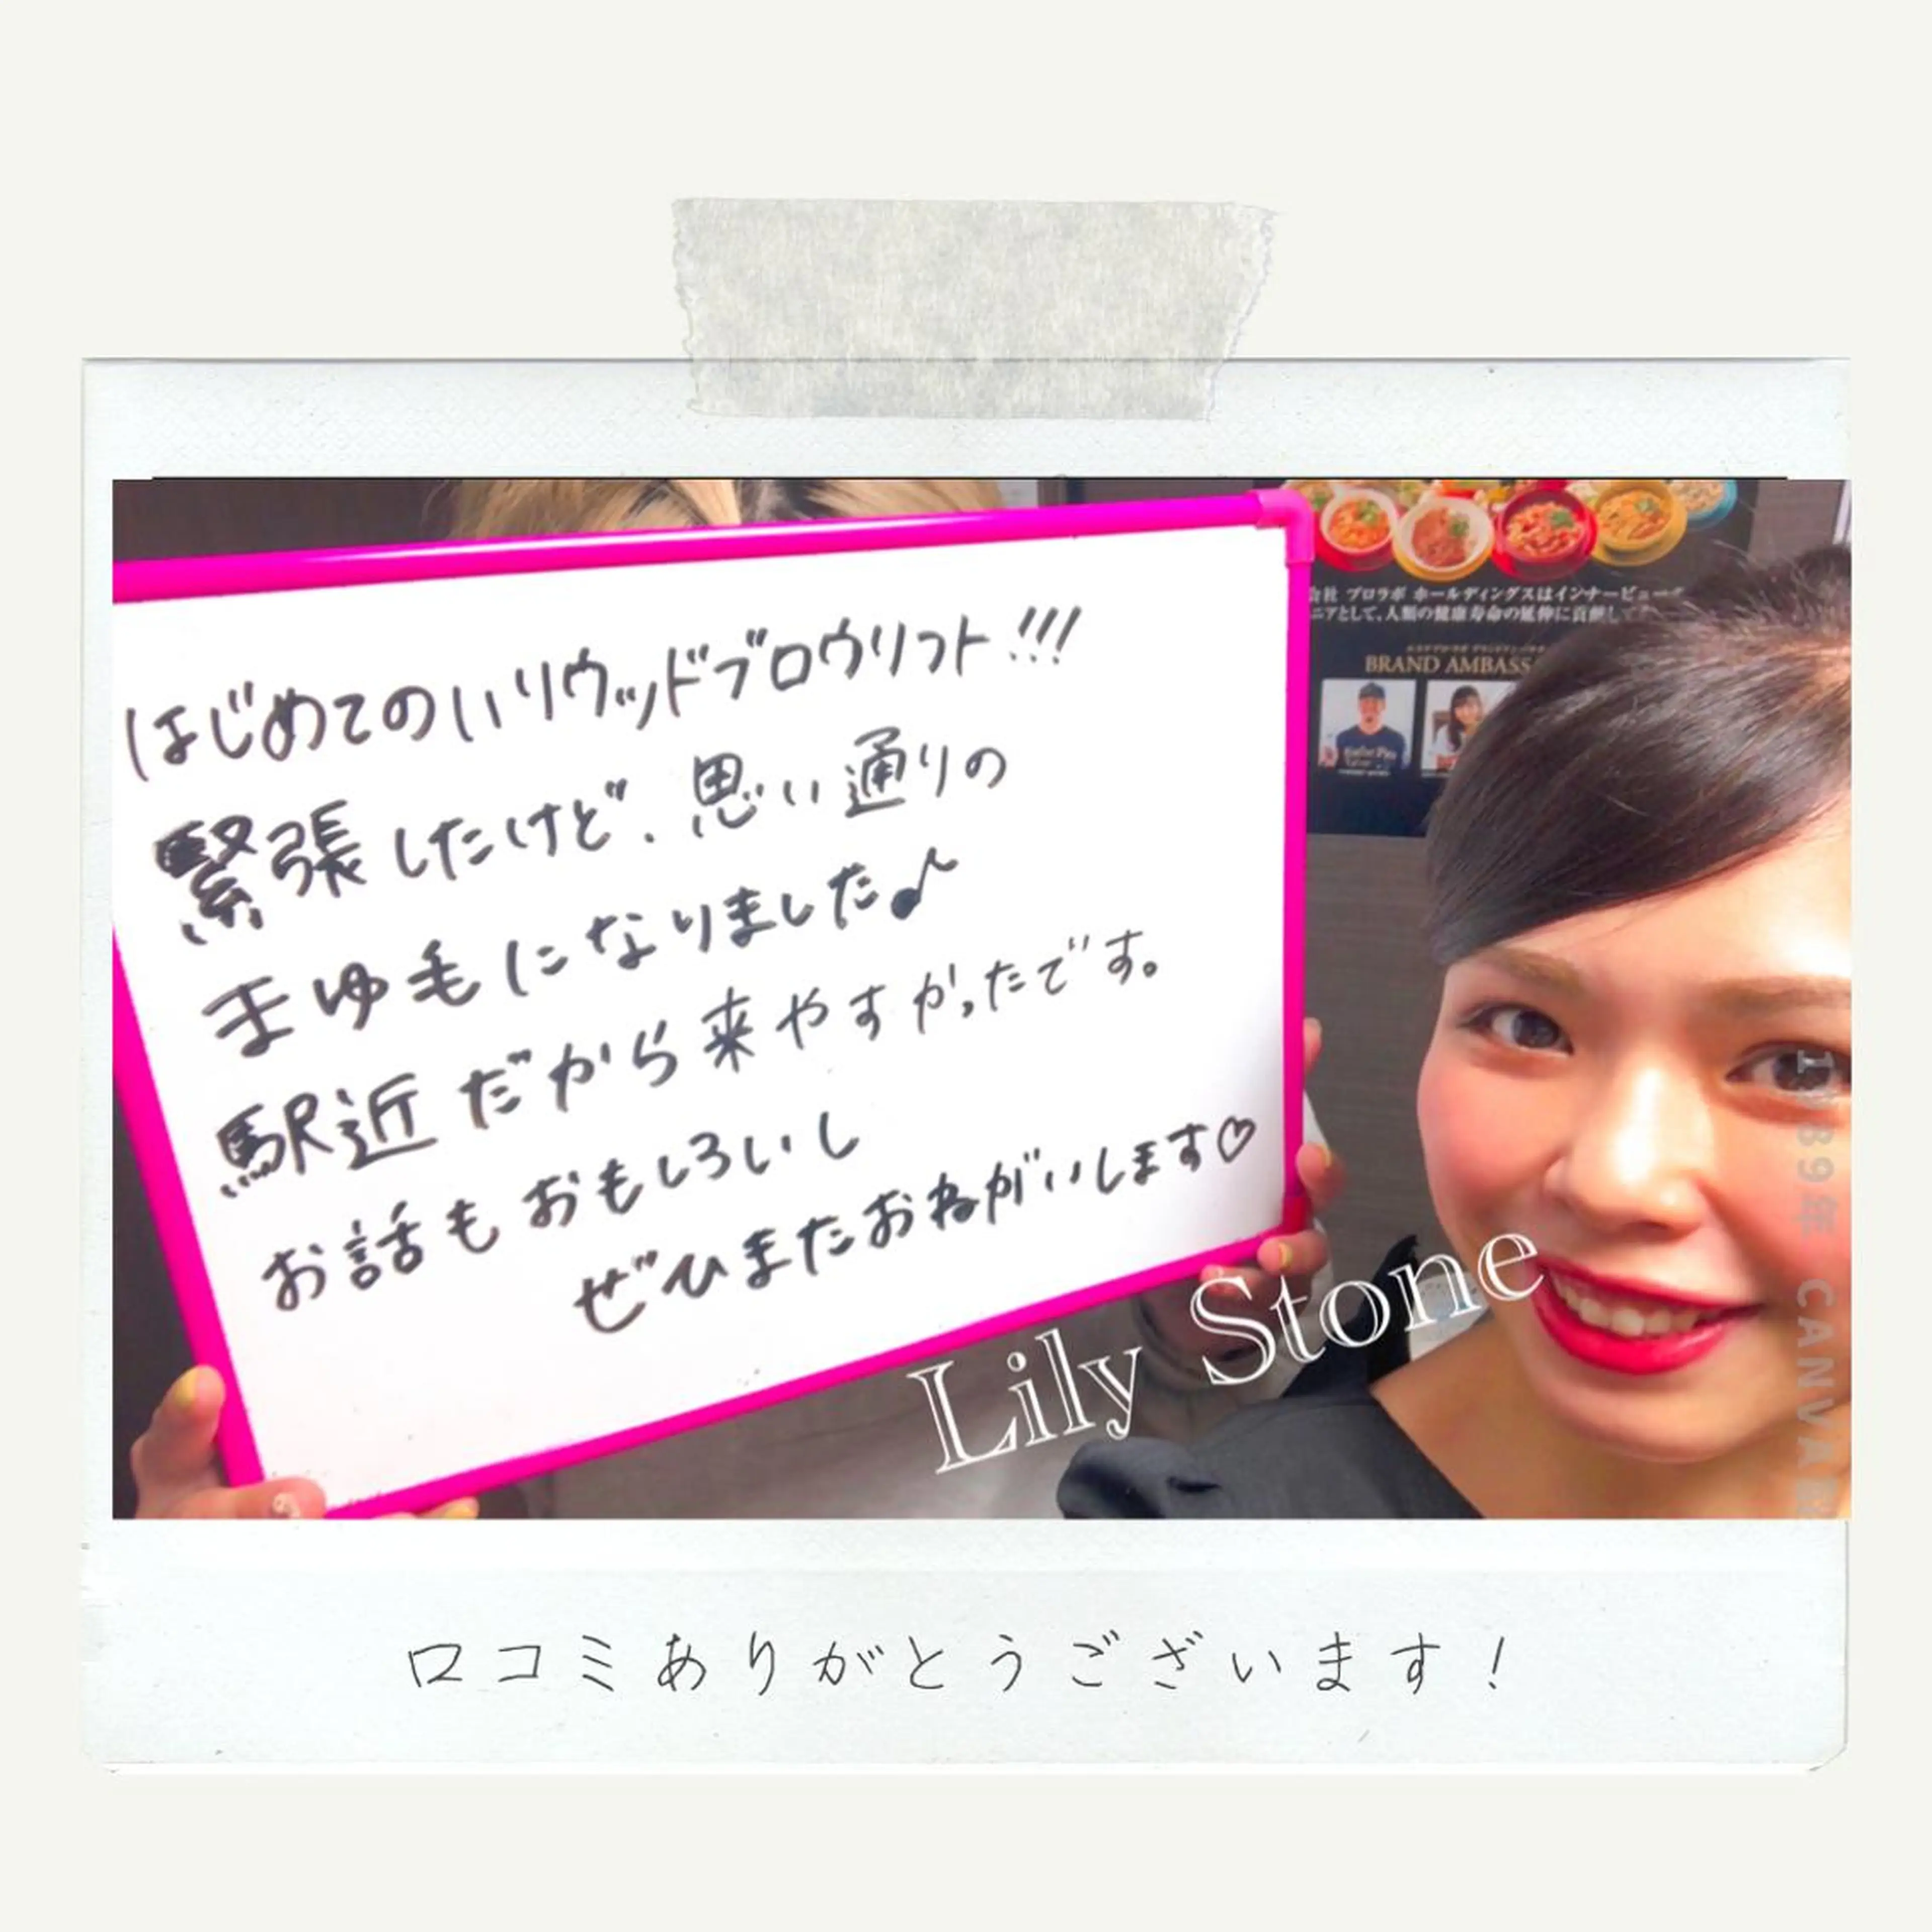 はじめてのハリウッドブロウリフト!!!
緊張したけど、思い通りの
まゆ毛になりました♪
駅近だから来やすかったです。
お話もおもしろいし
ぜひまたおねがいします♡
会社 プロラボ ホールディングスはインナービュー
ニアとして、人類の健康寿命の延伸に貢献して
BRAND AMBASS
Lily Stone
1989年 CANVA
口コミありがとうございます！